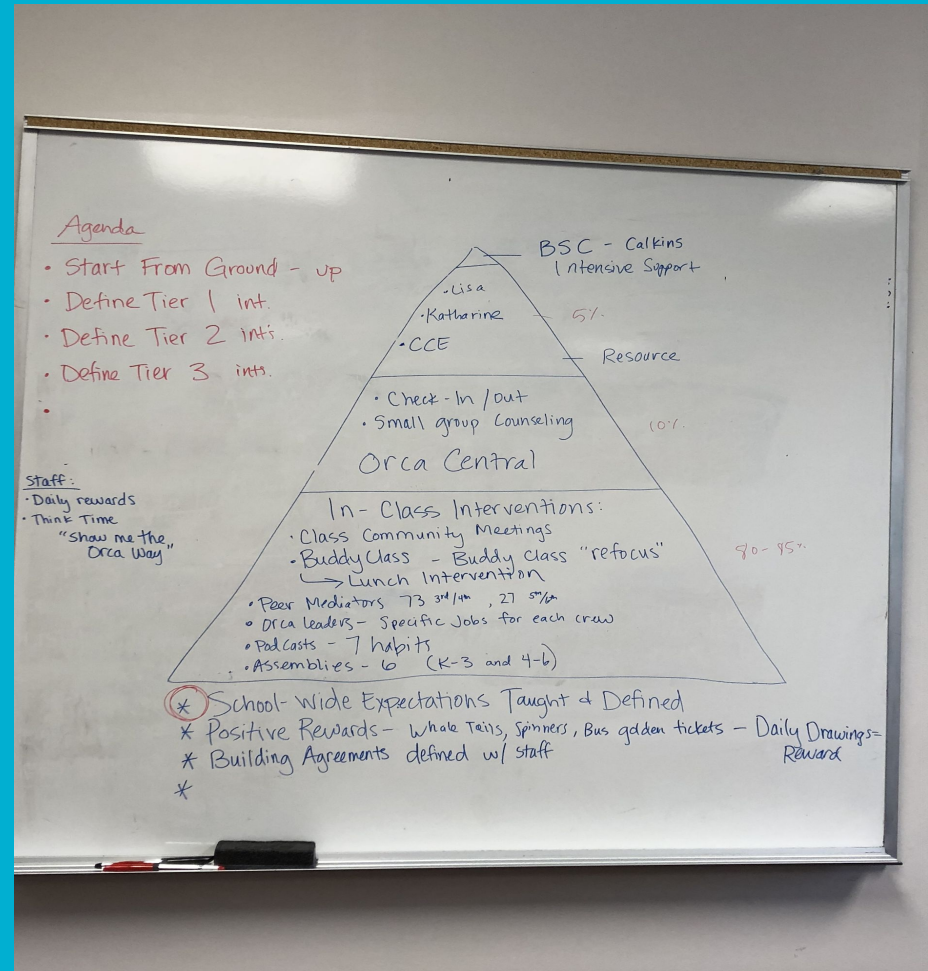 Agenda
• Start From Ground - up
• Define Tier 1 int.
• Define Tier 2 int's.
• Define Tier 3 ints.
•
Staff:
• Daily rewards
• Think Time
"Show me the
Orca Way"
BSC - Calkins
Intensive Support
• Lisa
• Katharine
5%
• CCE
Resource
• Check-In/out
• Small group Counseling
10%
Orca Central
In-Class Interventions:
• Class Community Meetings
• Buddy Class - Buddy Class "refocus"
→ Lunch Intervention
80-85%
• Peer Mediators 73 3rd/4th, 27 5th/6th
• Orca leaders - Specific Jobs for each crew
• Podcasts - 7 habits
• Assemblies - 6 (K-3 and 4-6)
* School-Wide Expectations Taught & Defined
* Positive Rewards - Whale Tails, Spinners, Bus golden tickets - Daily Drawings=
Reward
* Building Agreements defined w/ staff
*